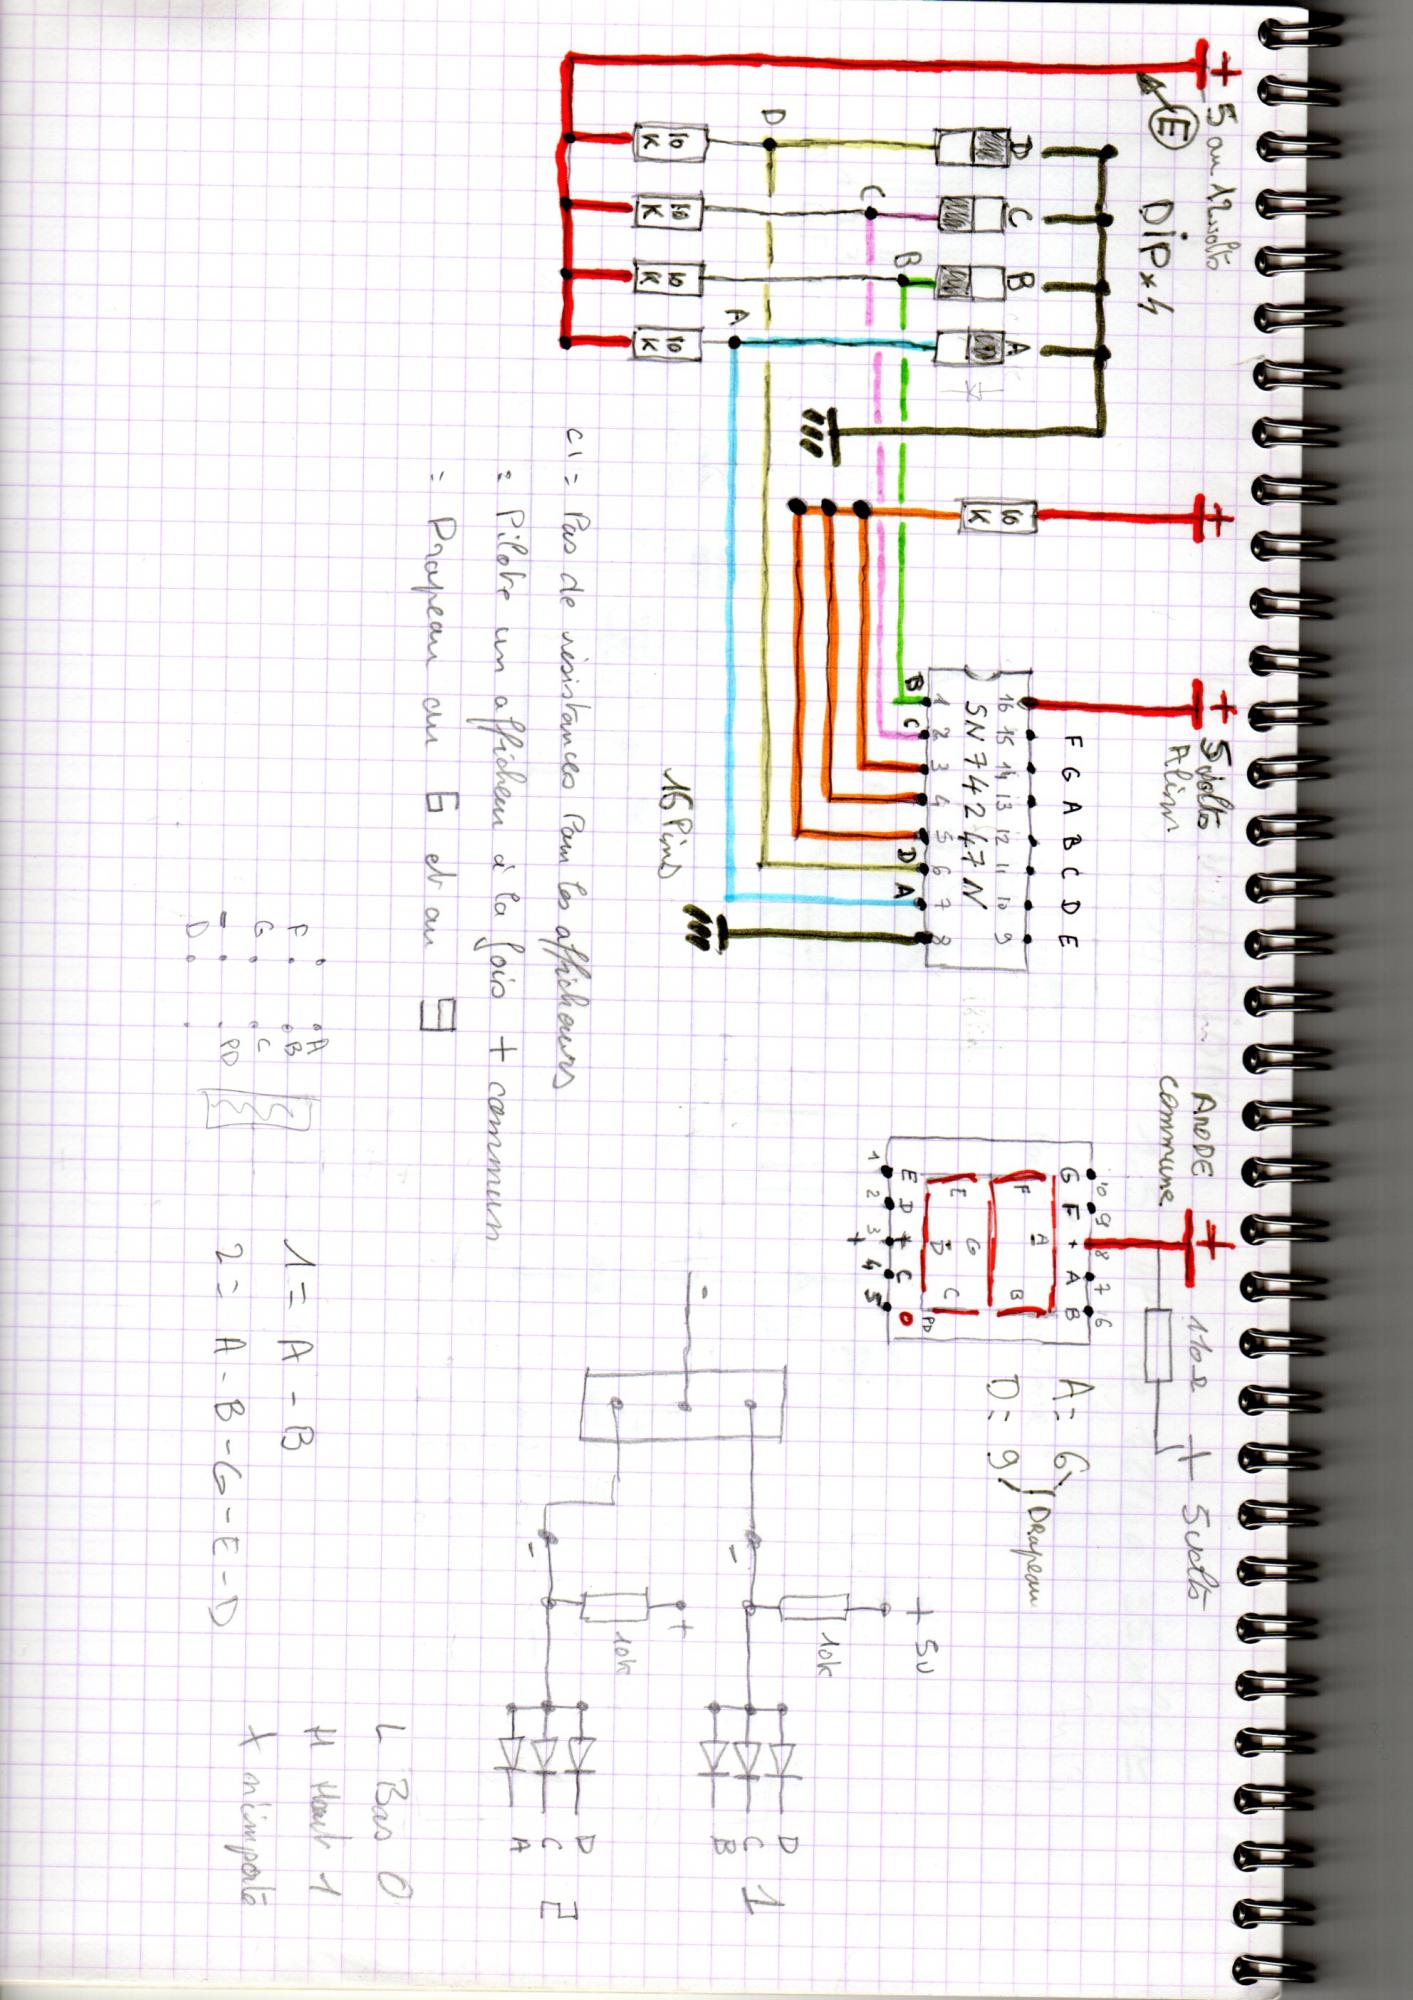 + 5 ou 12 volts
E
DIP x 4
D C B A
D
C
B
A
10 K
10 K
10 K
10 K
+
10 K
+ 5 volts
Alim
F G A B C D E
16 15 14 13 12 11 10 9
SN74247N
1 2 3 4 5 6 7 8
B C D A
16 Pins
ANODE
commune
+
110Ω
+ 5 volts
10 9 8 7 6
G F + A B
A
F B
G
E C
D
PD
E D + C
1 2 3 4 5
+
A = 6
D = 9
Drapeau
CI = Pas de résistances Pour les afficheurs
= Pilote un afficheur à la fois + commun
= Drapeau au 6 et au 9
+ 5v
10k
-
D
C
B
1
+
10k
-
D
C
A
2
A
F B
G C
- PD
D
1 = A - B
2 = A - B - G - E - D
L Bas 0
H Haut 1
X n'importe